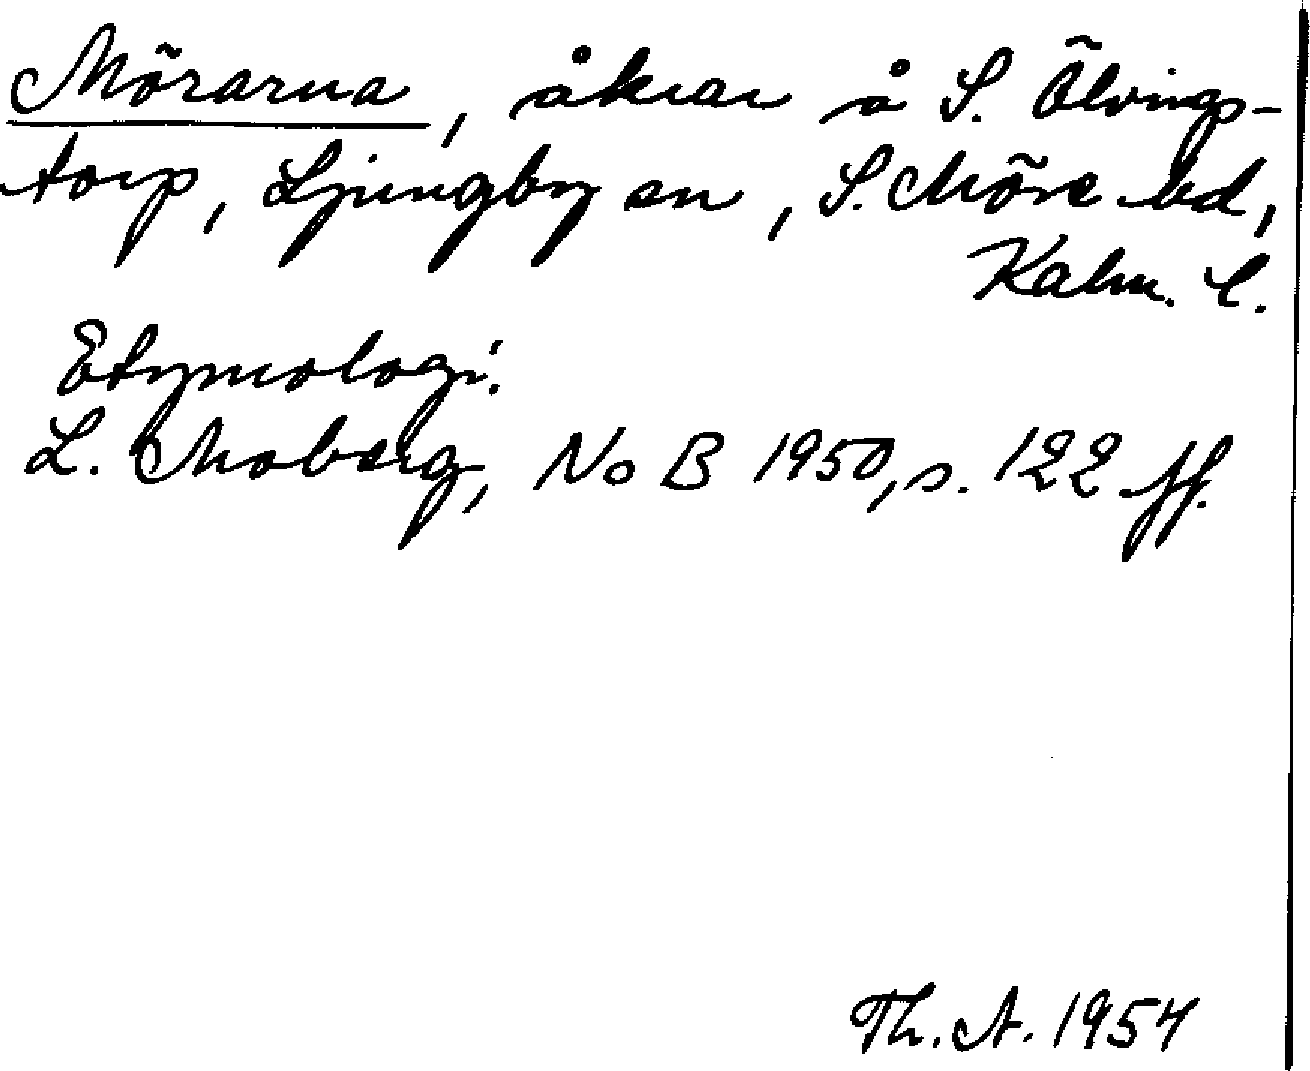 Mörarna, åkrar å S. Ölvings-
torp, Ljungby sn, S. Möre hd,
Kalm. l.
Etymologi.
L. Moberg, NoB 1950, s. 122 ff.
Th. A. 1954